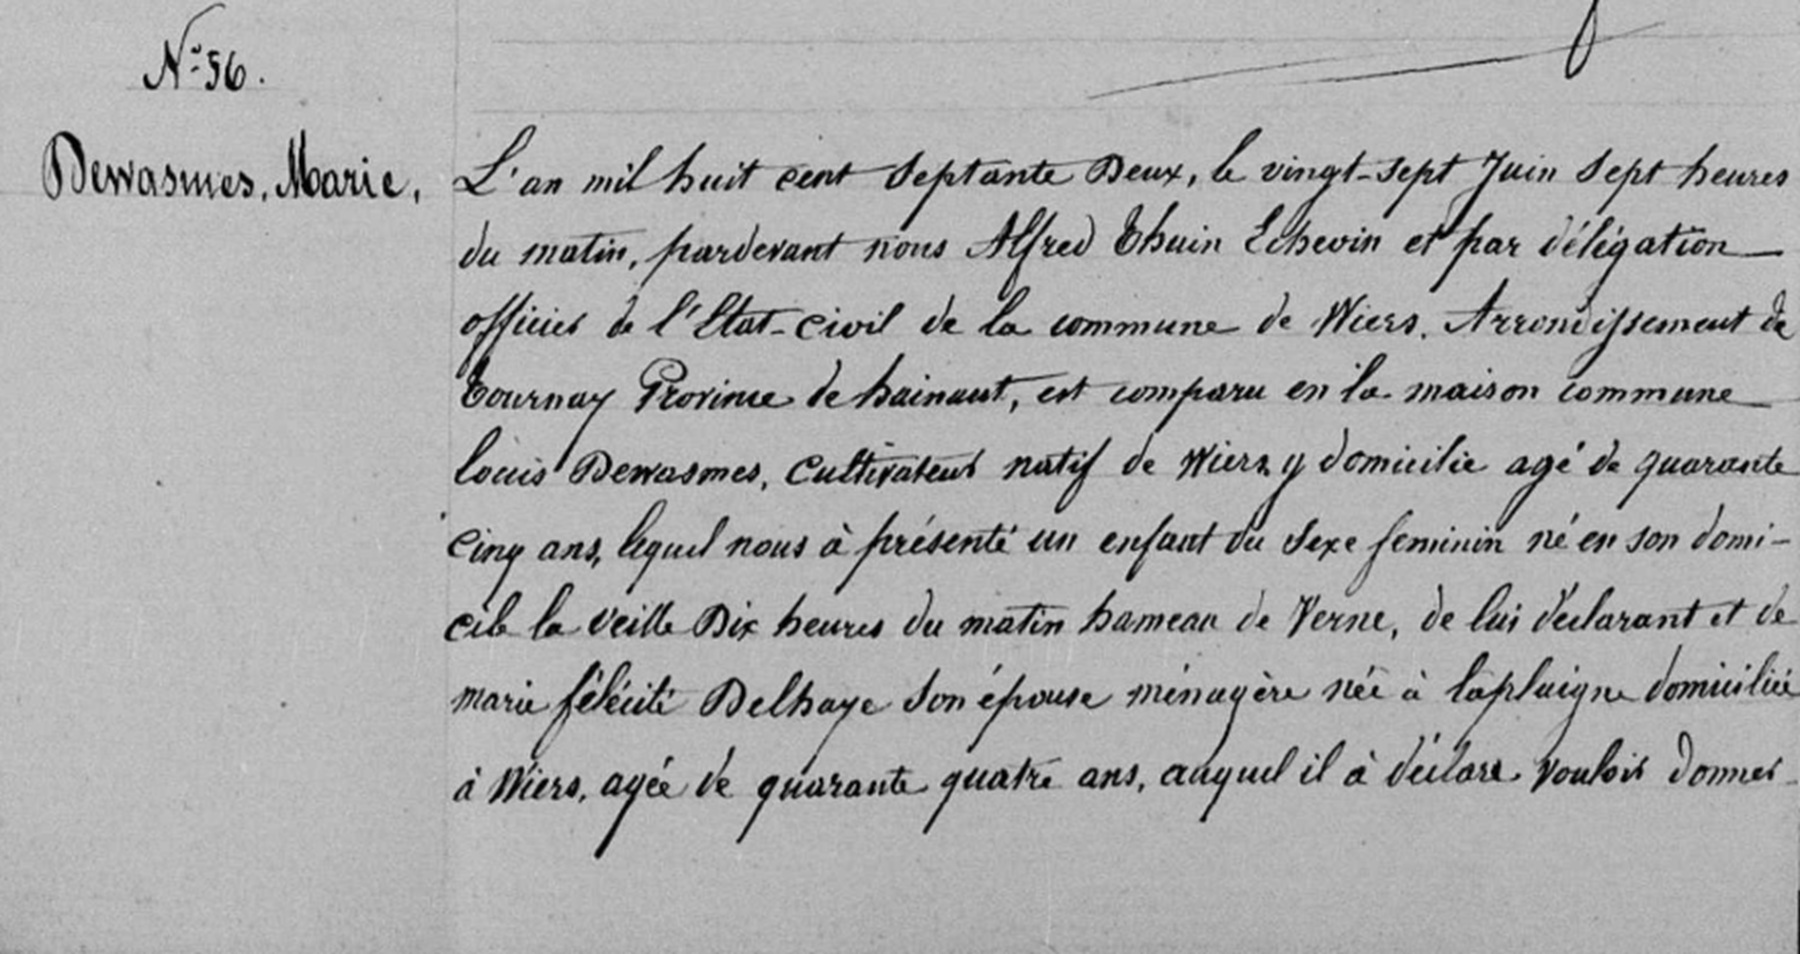 N° 56.
Dewasmes, Marie,
L'an mil huit cent Septante Deux, le vingt-sept Juin Sept heures
du matin, pardevant nous Alfred Thuin Echevin et par délégation
officier de l'Etat-civil de la commune de Wiers. Arrondissement de
Tournay Province de hainaut, est comparu en la maison commune
louis Dewasmes, Cultivateur natif de Wiers y domicilie agé de quarante
cinq ans, lequel nous à présenté un enfant du Sexe feminin né en son domi-
cile la veille Dix heures du matin hameau de Verne, de lui déclarant et de
marie félécité Delhaye Son épouse ménagère née à laplaigne domiciliée
à Wiers, agée de quarante quatre ans, auquel il à déclare vouloir donner